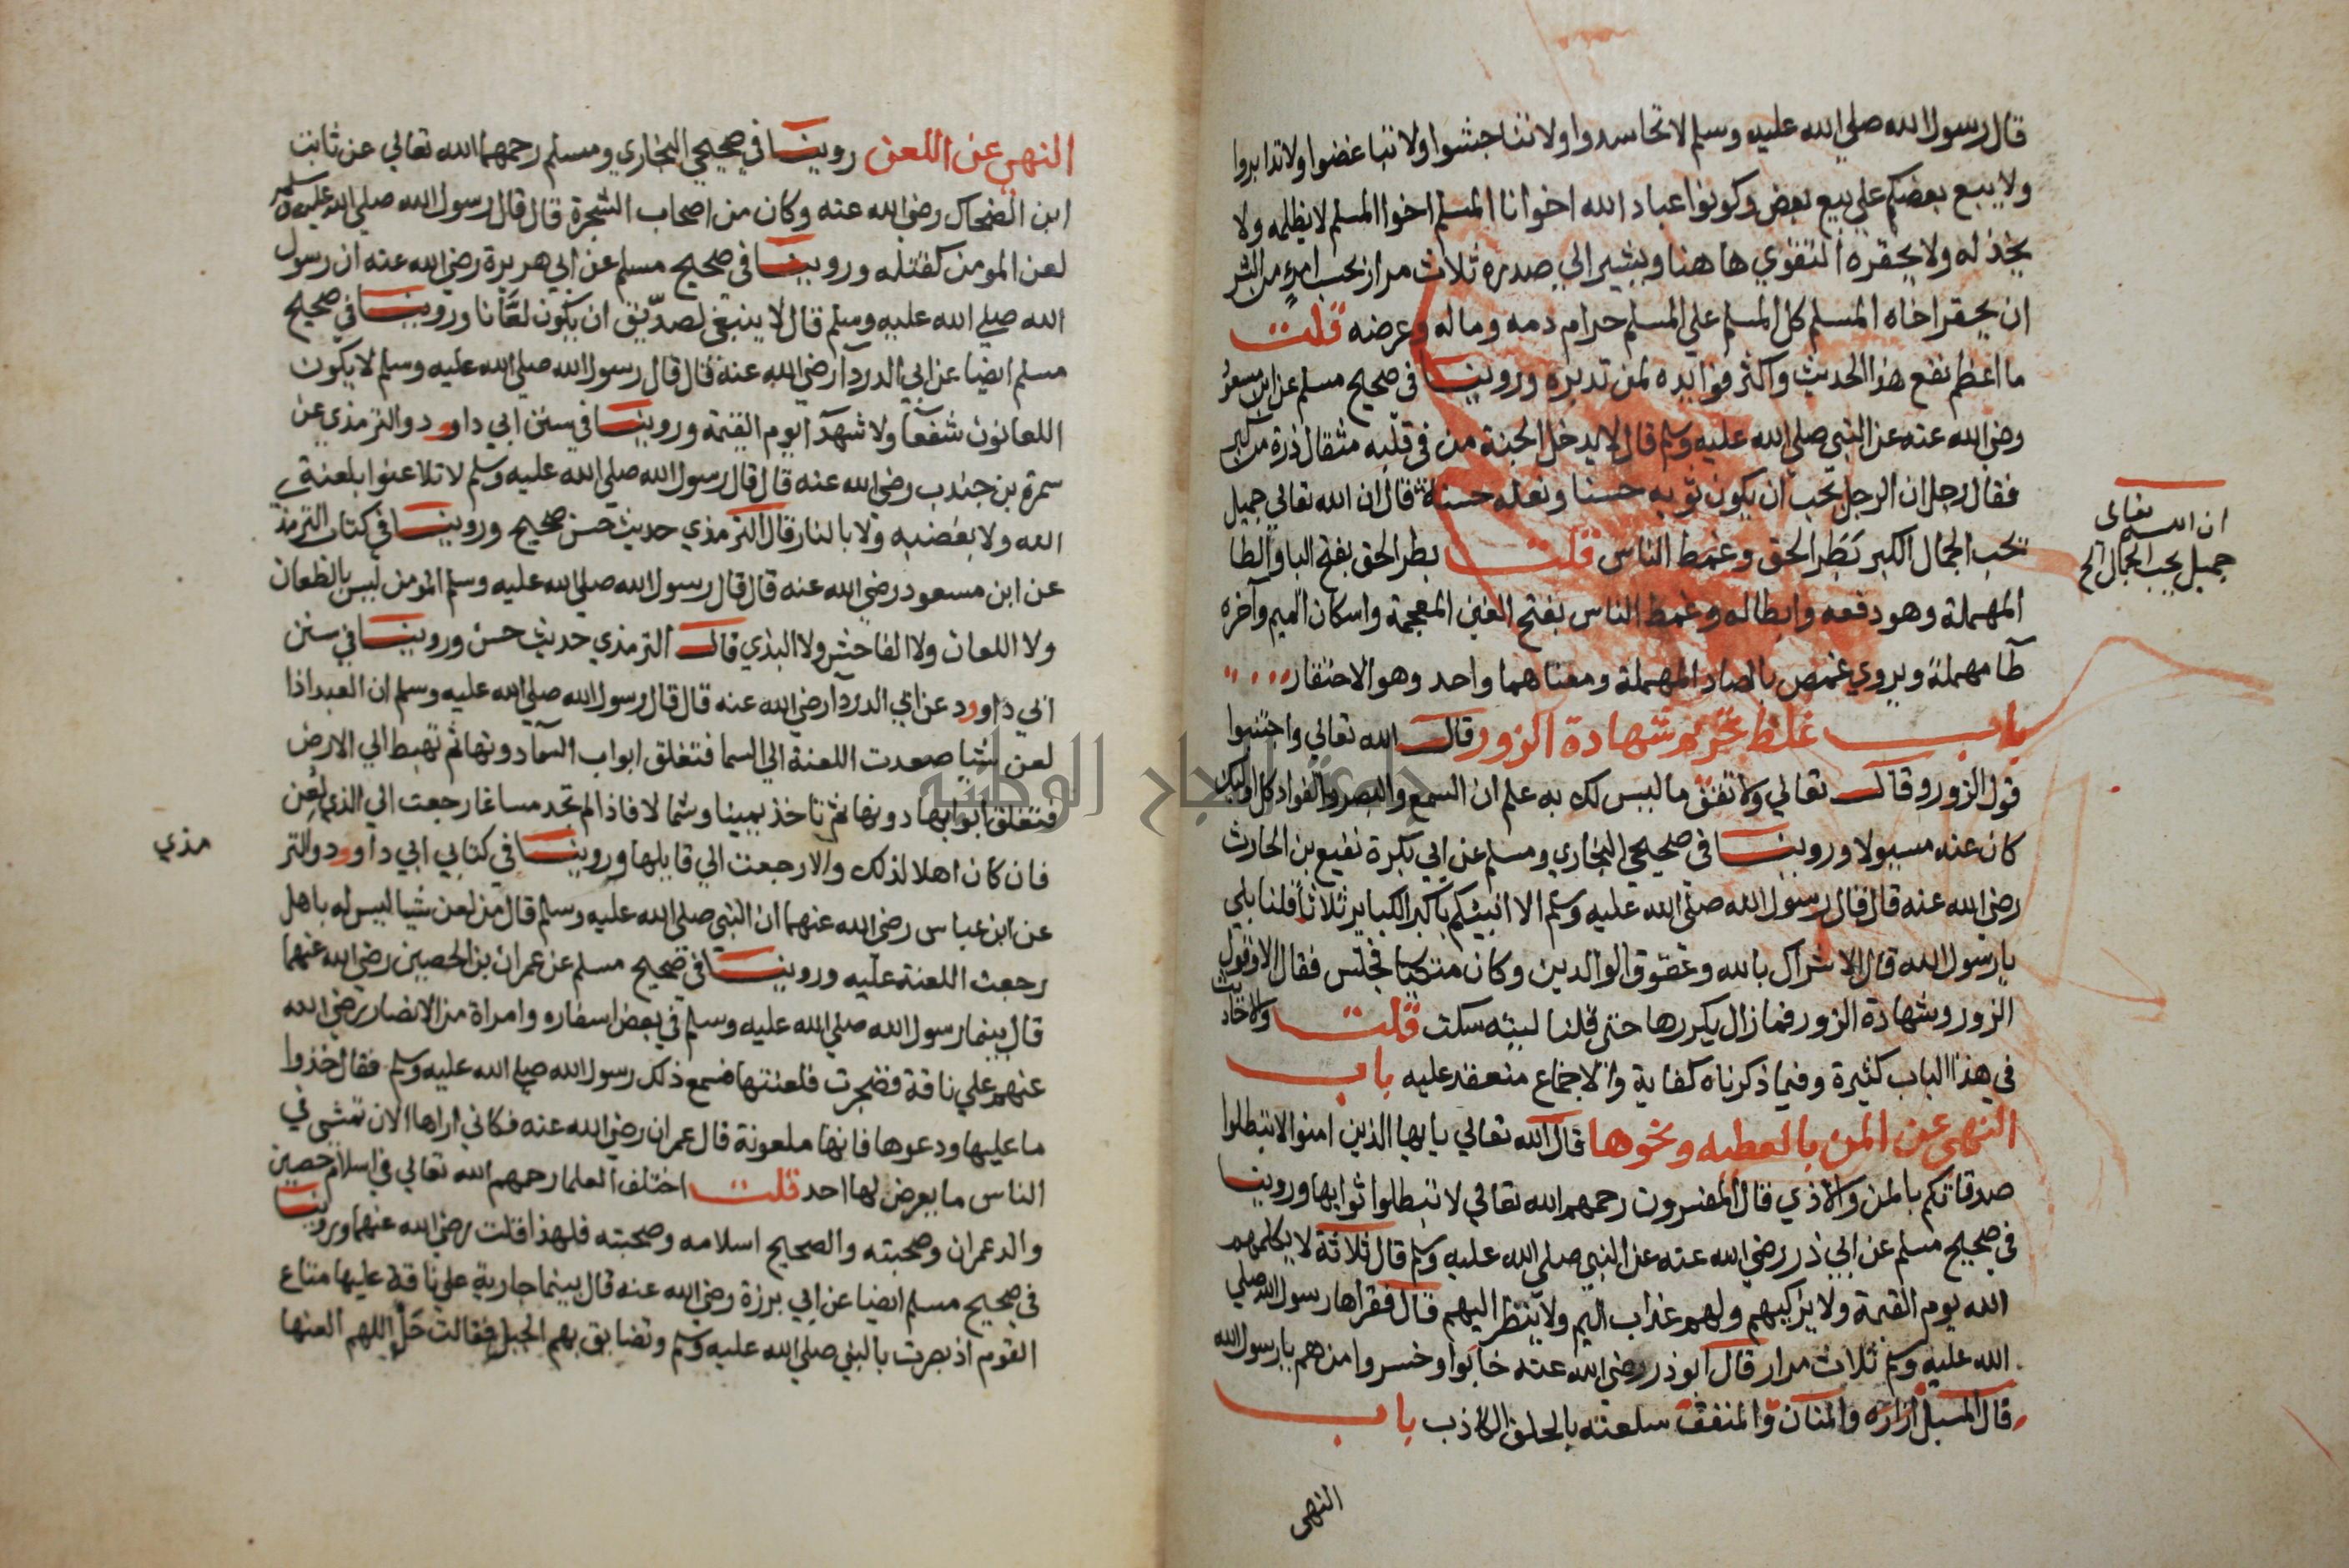 قال رسول الله صلي الله عليه وسلم لا تحاسدوا ولا تناجشوا ولا تباغضوا ولا تدابروا
ولا يبيع بعضكم علي بيع بعض وكونوا عباد الله اخوانا المسلم اخوا المسلم لا يظلمه ولا
يخذله ولا يحقره التقوي ها هنا ويشير الي صدره ثلاث مرار بحسب امرءٍ من الشر
ان يحقر اخاه المسلم كل المسلم علي المسلم حرام دمه وماله وعرضه قلت
ما اعظم نفع هذا الحديث واكثر فوايده لمن تدبره وروينا في صحيح مسلم عن ابن مسعود
رضي الله عنه عن النبي صلي الله عليه وسلم قال لا يدخل الجنة من في قلبه مثقال ذرة من كبر
فقال رجل ان الرجل يحب ان يكون ثوبه حسنا ونعله حسنة قال ان الله تعالي جميل
يحب الجمال الكبر بَطَر الحق وغمط الناس قلت بطر الحق بفتح البا والطا
المهملة وهو دفعه وابطاله وغمط الناس بفتح الغين المعجمة واسكان الميم وآخره
طآ مهملة ويروي غمص بالصاد المهملة ومعناهما واحد وهو الاحتقار
باب غلظ تحريم شهادة الزور قال الله تعالي واجتنبوا
قول الزور وقال تعالي ولا تقف ما ليس لك به علم ان السمع والبصر والفواد كل اوليك
كان عنه مسيولا وروينا في صحيحي البخاري ومسلم عن ابي بكرة نفيع بن الحارث
رضي الله عنه قال قال رسول الله صلي الله عليه وسلم الا انبيكم باكبر الكباير ثلاثا قلنا بلي
يا رسول الله قال الاشراك بالله وعقوق الوالدين وكان متكيا فجلس فقال الا وقول
الزور وشهادة الزور فما زال يكررها حتي قلنا ليته سكت قلت والاحاديث
في هذا الباب كثيرة وفيما ذكرناه كفاية والاجماع منعقد عليه باب
النهي عن المن بالعطيه ونحوها قال الله تعالي يا يها الذين امنوا لا تبطلوا
صدقاتكم بالمن والاذي قال المفسرون رحمهم الله تعالي لا تبطلوا ثوابها وروينا
في صحيح مسلم عن ابي ذر رضي الله عنه عن النبي صلي الله عليه وسلم قال ثلاثة لا يكلمهم
الله يوم القيمة ولا يزكيهم ولهم عذاب اليم ولا ينظر اليهم قال فقراها رسول الله صلي
الله عليه وسلم ثلاث مرار قال ابو ذر رضي الله عنه خابوا وخسروا من هم يا رسول الله
قال المسبل ازاره والمنان والمنفق سلعته بالحلف الكاذب باب
النهي
ان الله تعالى
جميل يحب الجمال الخ
النهي عن اللعن روينا في صحيحي البخاري ومسلم رحمهما الله تعالي عن ثابت
ابن الضحاك رضي الله عنه وكان من اصحاب الشجرة قال قال رسول الله صلي الله عليه وسلم
لعن المومن كقتله وروينا في صحيح مسلم عن ابي هريرة رضي الله عنه ان رسول
الله صلي الله عليه وسلم قال لا ينبغي لصدّيق ان يكون لعَّانا وروينا في صحيح
مسلم ايضا عن ابي الدردآ رضي الله عنه قال قال رسول الله صلي الله عليه وسلم لا يكون
اللعانون شفعآ ولا شهدآ يوم القيمة وروينا في سنن ابي داوود والترمذي عن
سمرة بن جندب رضي الله عنه قال قال رسول الله صلي الله عليه وسلم لا تلاعنوا بلعنة
الله ولا بغضبه ولا بالنار قال الترمذي حديث حسن صحيح وروينا في كتاب الترمذي
عن ابن مسعود رضي الله عنه قال قال رسول الله صلي الله عليه وسلم المومن ليس بالطعان
ولا اللعان ولا الفاحش ولا البذي قال الترمذي حديث حسن وروينا في سنن
ابي داوود عن ابي الدردآ رضي الله عنه قال قال رسول الله صلي الله عليه وسلم ان العبد اذا
لعن شيا صعدت اللعنة الي السما فتغلق ابواب السمآ دونها ثم تهبط الي الارض
فتغلق ابوابها دونها ثم تاخذ يمينا وشمالا فاذا لم تجد مساغا رجعت الي الذي لُعِن
فان كان اهلا لذلك والا رجعت الي قايلها وروينا في كتابي ابي داوود والتر
مذي
عن ابن عباس رضي الله عنهما ان النبي صلي الله عليه وسلم قال من لعن شيا ليس له باهل
رجعت اللعنة عليه وروينا في صحيح مسلم عن عمران بن الحصين رضي الله عنهما
قال بينما رسول الله صلي الله عليه وسلم في بعض اسفاره وامراة من الانصار رضي الله
عنهم علي ناقة فضجرت فلعنتها فسمع ذلك رسول الله صلي الله عليه وسلم فقال خذوا
ما عليها ودعوها فانها ملعونة قال عمران رضي الله عنه فكاني اراها الان تمشي في
الناس ما يعرض لها احد قلت اختلف العلما رحمهم الله تعالي في اسلام حصين
والد عمران وصحبته والصحيح اسلامه وصحبته فلهذا قلت رضي الله عنهما وروينا
في صحيح مسلم ايضا عن ابي برزة رضي الله عنه قال بينما جارية علي ناقة عليها متاع
القوم اذ بصرت بالنبي صلي الله عليه وسلم وتضايق بهم الجبل فقالت حَلْ اللهم العنها